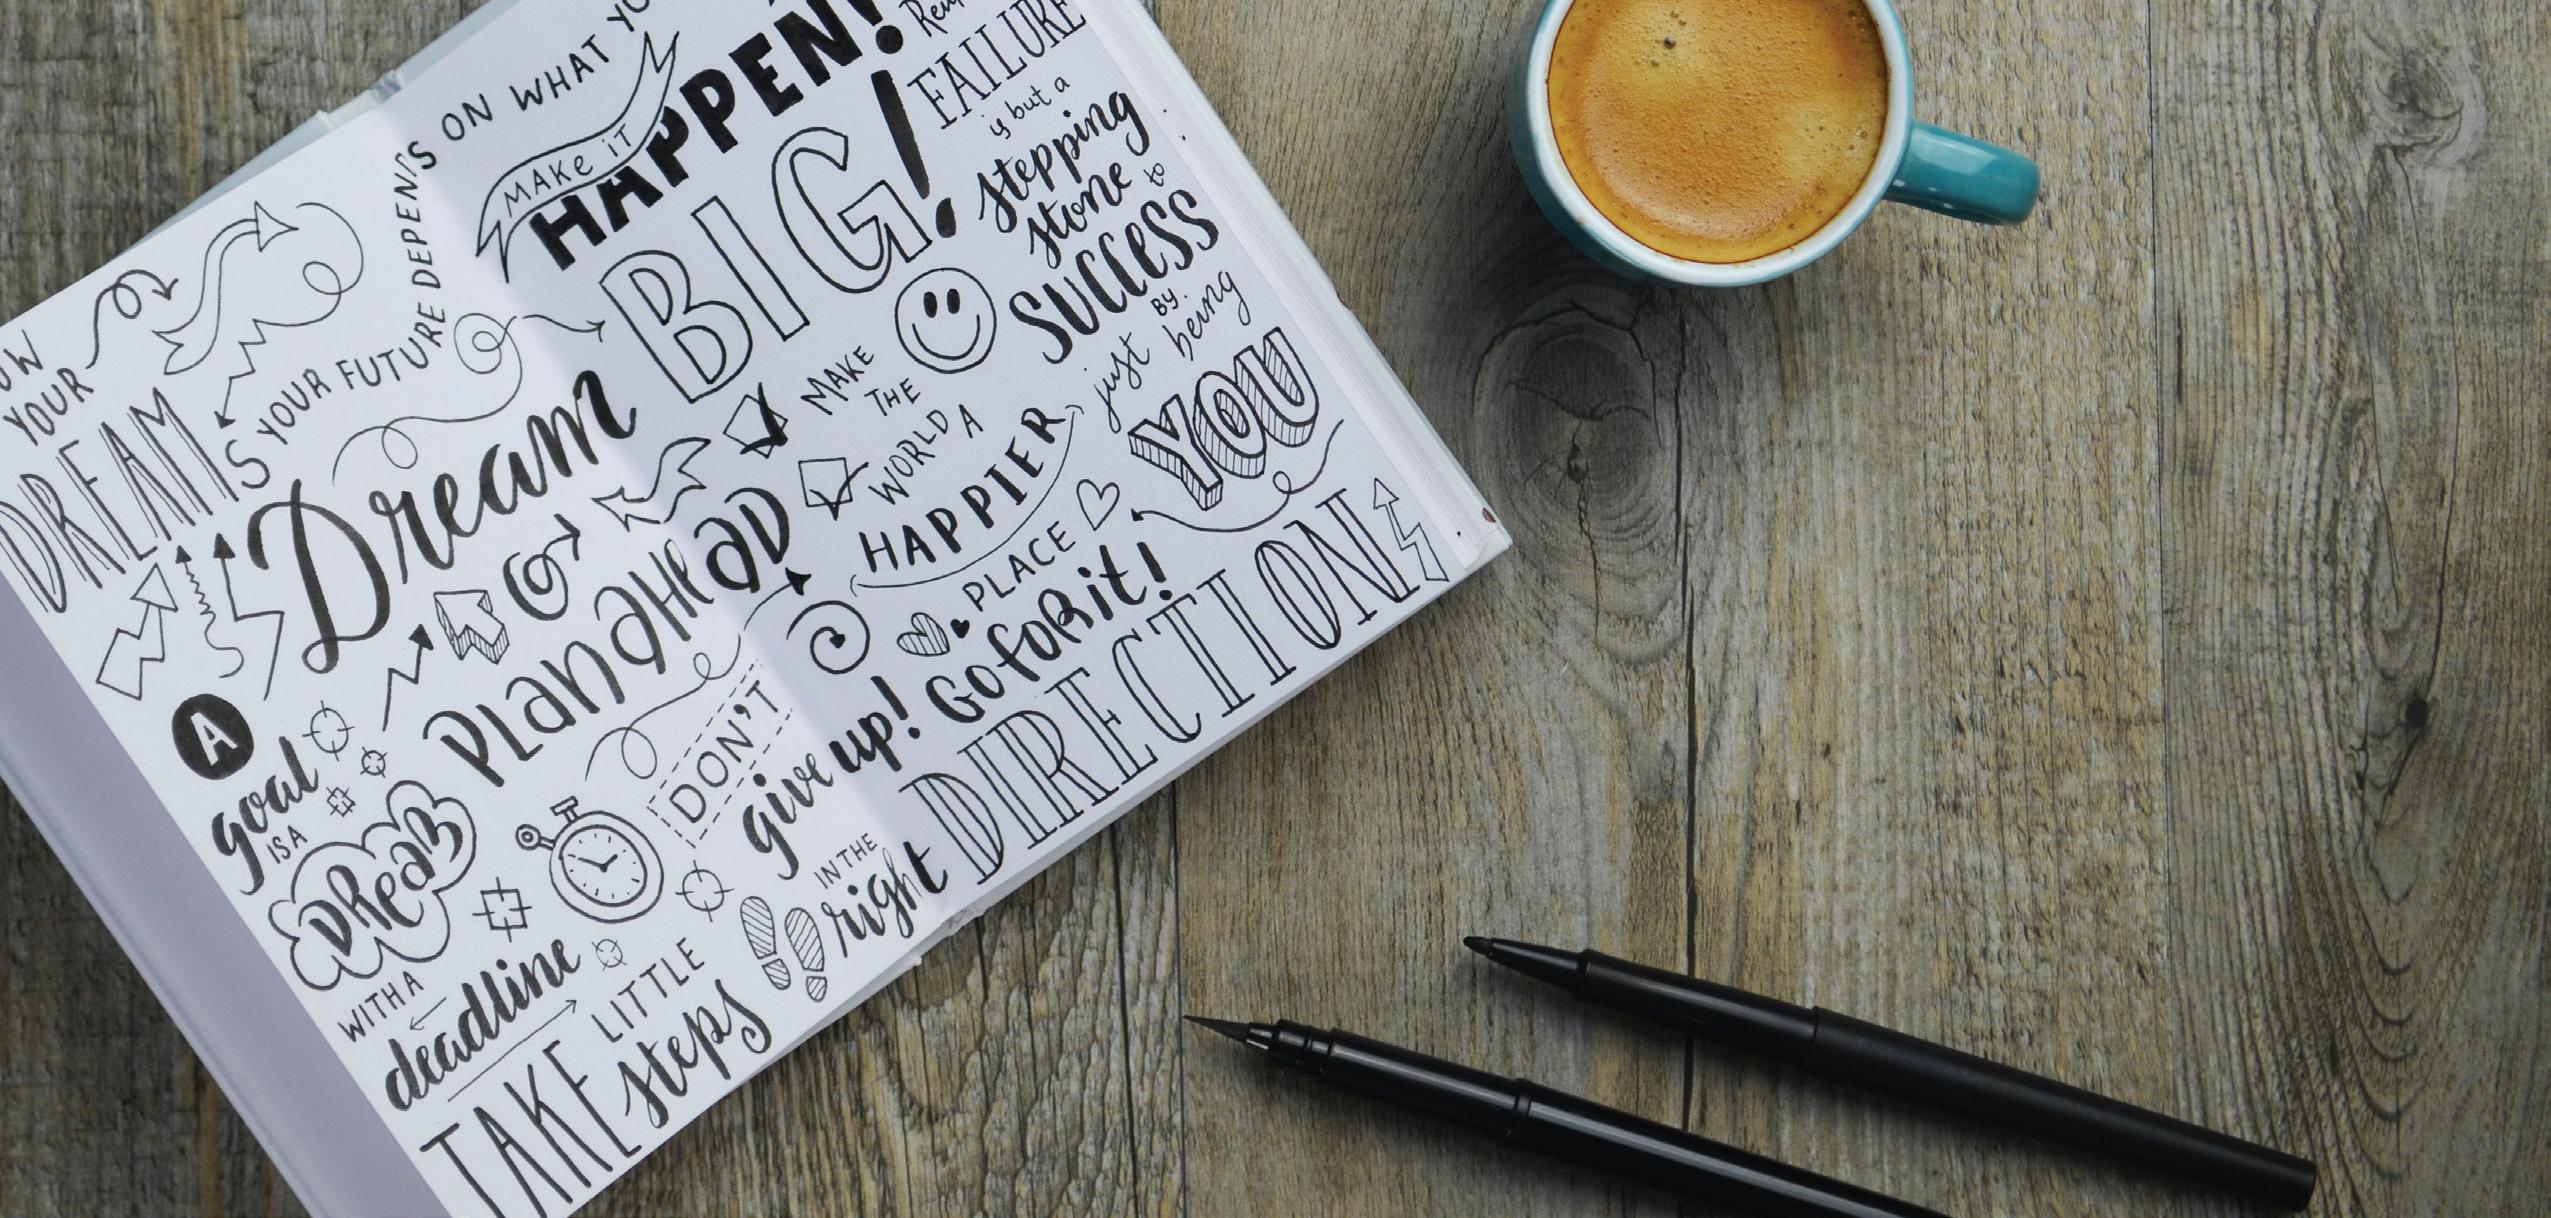 YOUR
DREAMS
YOUR FUTURE DEPENDS ON WHAT
MAKE iT
HAPPEN!
Dream
BIG!
FAILURE
is but a
stepping
stone to
SUCCESS
MAKE
THE
WORLD A
HAPPIER
PLACE
just BY being
YOU
PLAN AHEAD
A
goal
IS A
DReaM
WITH A
deadline
DON'T
give up!
GO foR it!
TAKE LITTLE
steps
IN THE
right
DIRECTION